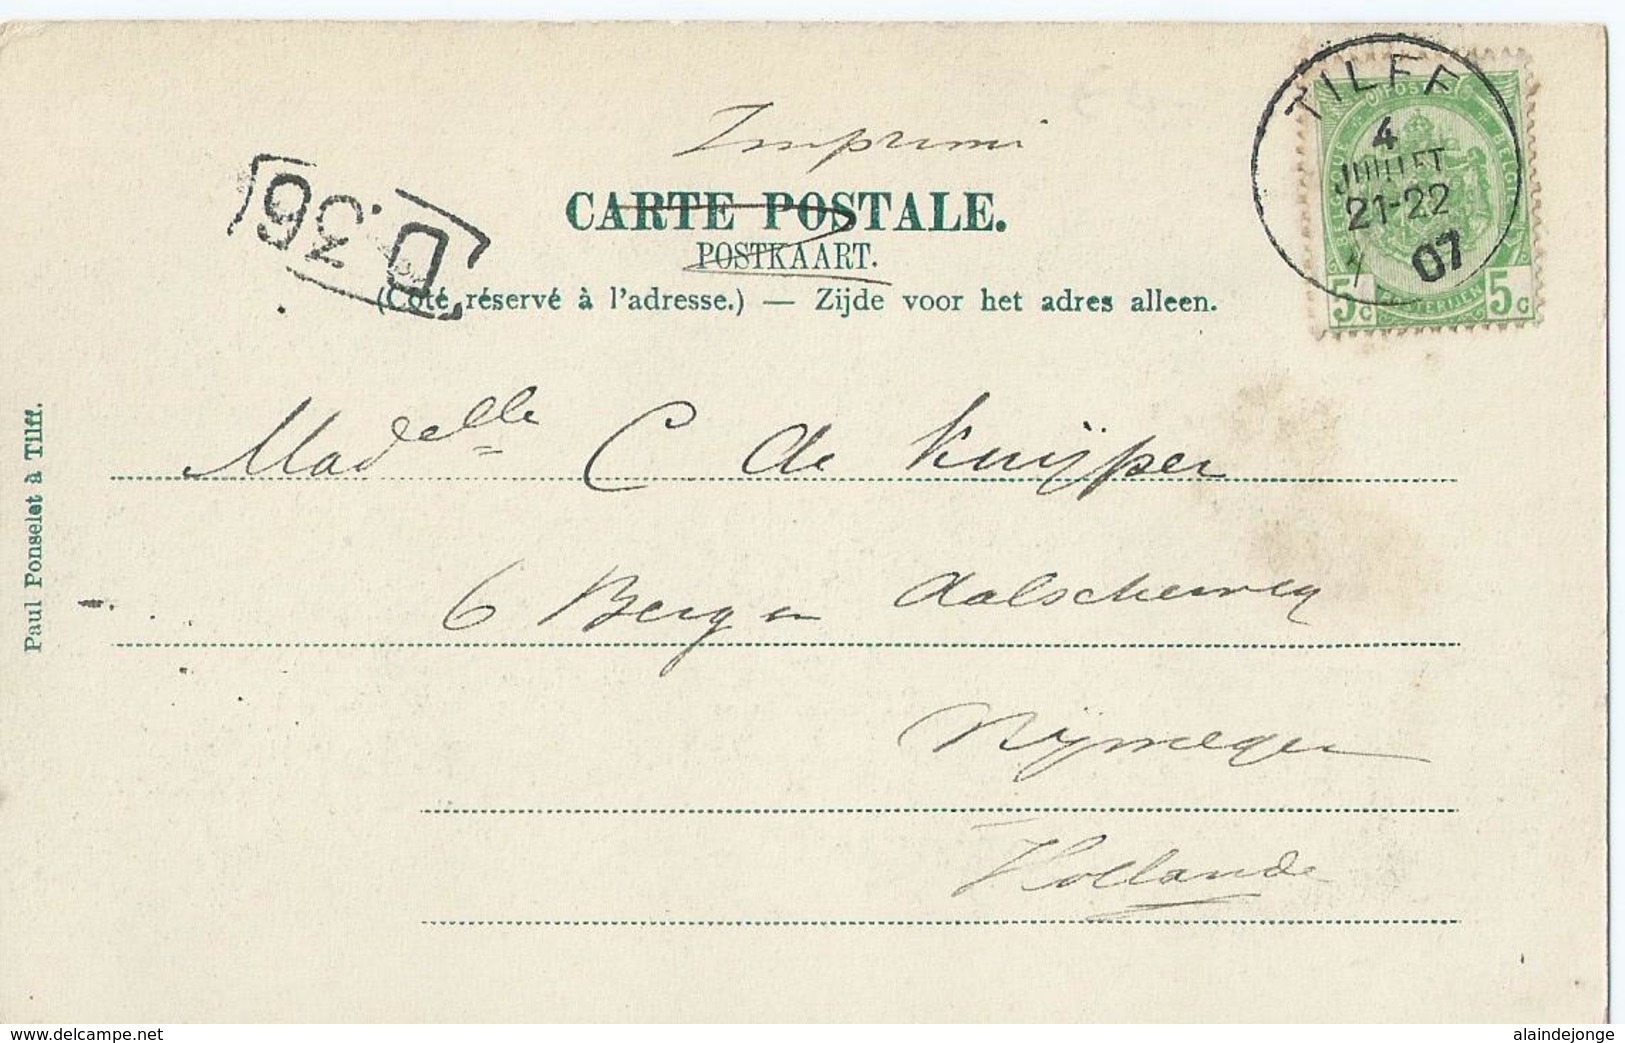 Imprimé
TILFF
4
JUILLET
21-22
07
BELGIQUE POSTERIJEN
5c 5c
D.36
CARTE POSTALE.
POSTKAART.
(Côté réservé à l'adresse.) — Zijde voor het adres alleen.
Madelle C de Kuijper
6 Berg en Dalscheweg
Nijmegen
Hollande
Paul Ponselet à Tilff.
www.delcampe.net
alaindejonge